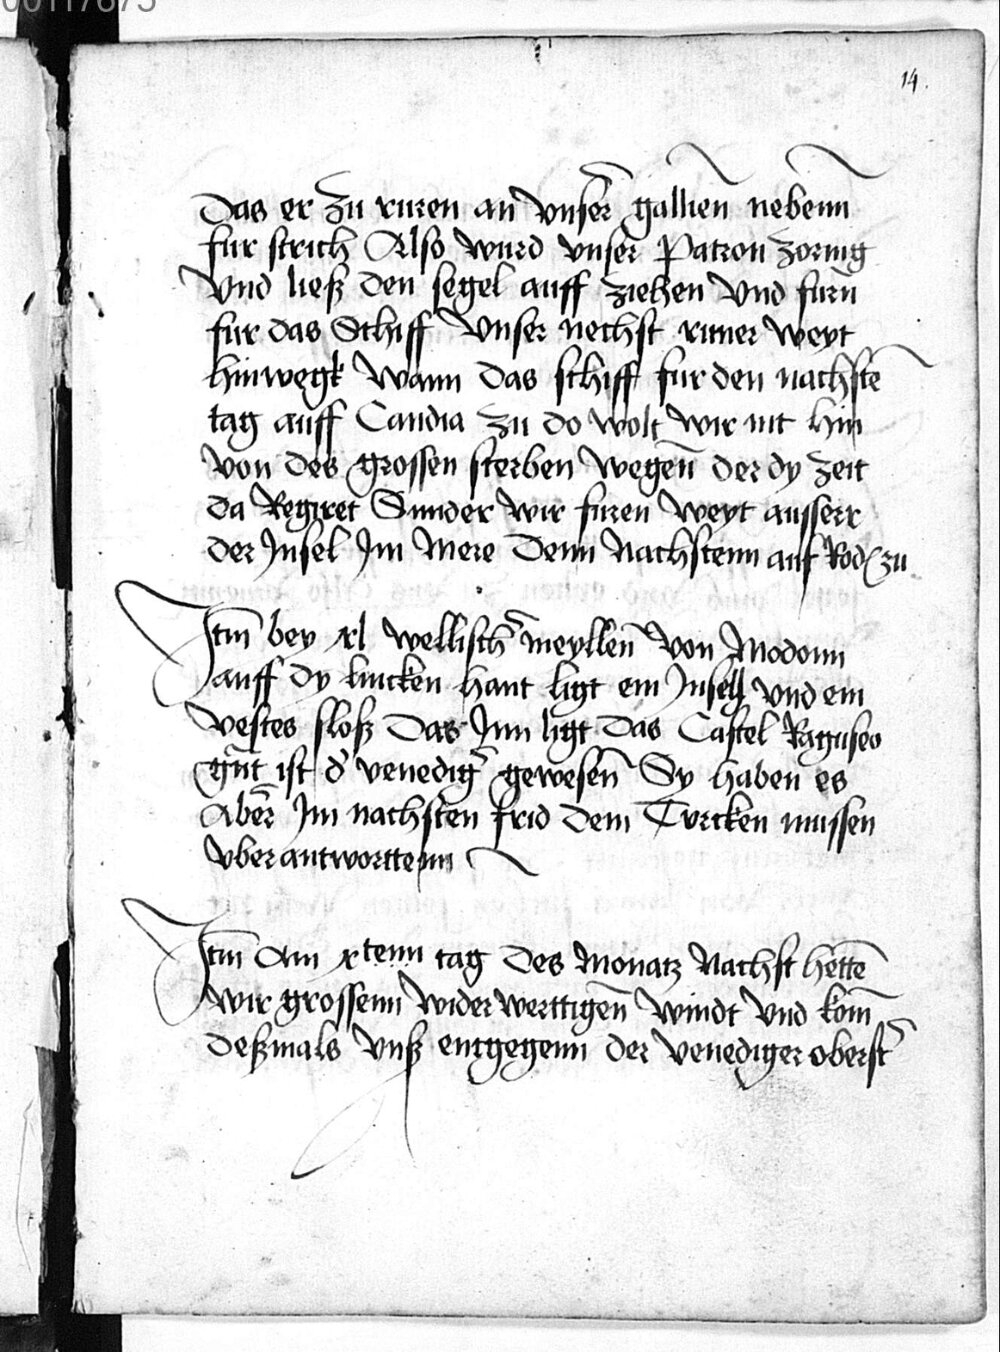 00117675
14.
Das er zu ruren an vnser̄ gallien nebenn
fur strich Also wurd vnser Patron zornig
Vnd ließ den segel auff ziehen Vnd furn
fur das Schiff Vnser nechst ritner weyt
hinwegk Wann das schiff fur den nachstē
tag auff Candia zu do wolt wir nit hin
von des grossen sterben wegen̄ der dy zeit
da Regiret Sunder wir furen weyt ausserr
der Jnsel Jm Mere Denn Nachstenn auf Rod zu
Jtm̄ bey xl wellisch̄ meyllen̄ von Modonn
auff dy lincken hant ligt ein Jnsell vnd ein
vestes sloß Das Jnn ligt das Castel Raguseo
gnt ist d' venedig' gewesen̄ Sy haben es
Aber̄ Jm nachsten frid dem Turcken mussen
vber antworttenn
Jtm̄ Am xtenn tag des Monatz Nachst hettē
wir grossenn wider werttigen̄ windt vnd kom̄
deßmals vnß entgegenn der venediger oberst'